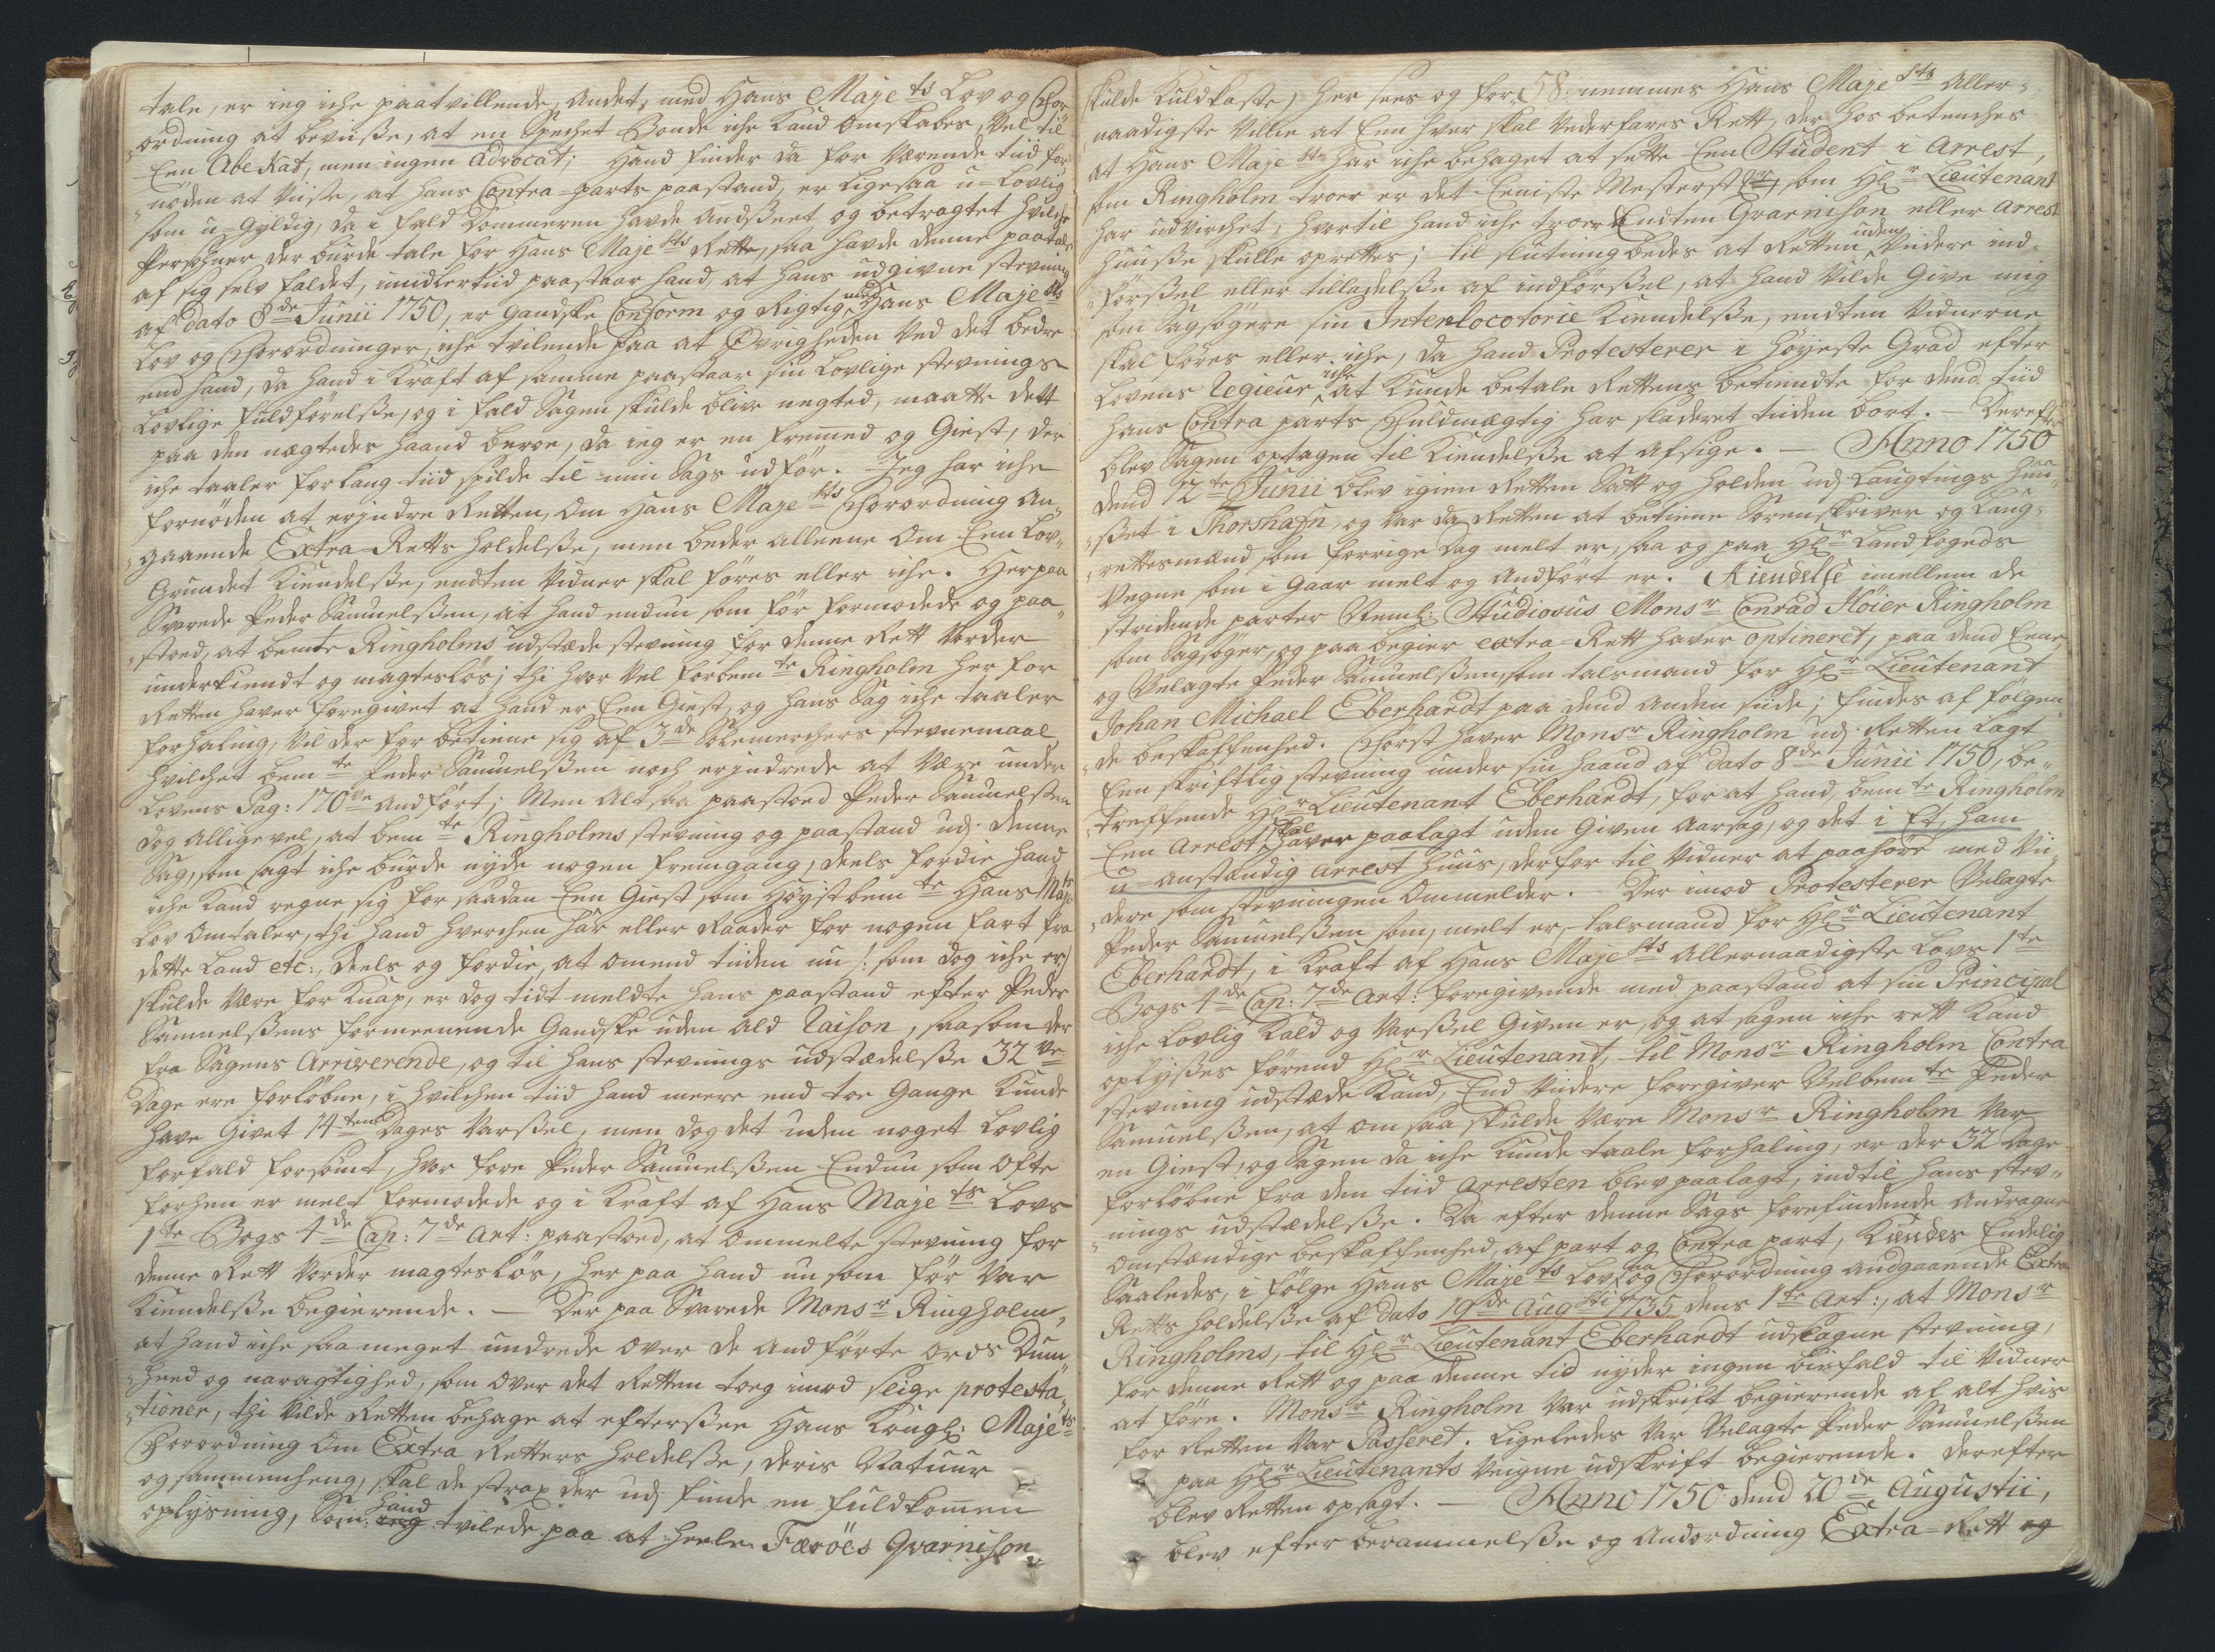 tale, er ieg iche paatvillende, andet, med Hans Maje ts Lov og For
ordning at beviisse, at en Specket Bonde iche kand omskabes, vel til
Een Abe Kat, men ingen Advocat; Hand finder da for værende tiid for
nöden at viise, at hans Contra=parts paastand, er ligesaa u=Lovlig
som u=Gyldig, da i fald Dommeren havde andsseet og betragtet hvilche
Persohner der burde tale for Hans Maje sts Rette, saa havde denne paatale
af sig selv faldet, imidlertiid paastaar hand, at hans udgivne stevning
af dato 8de Junii 1750, er gandske Conform og Rigtig med Hans Maje sts
Lov og Forordninger, iche tvilende paa at Øvrigheden ved det bedre
end hand, da hand i Kraft af samme paastaar sin Lovlige stevnings
Lovlige fuldförelsse, og i fald Sagen skulde blive negted, maatte dett
paa den nægtedes haand beroe, da ieg er en fremmed og Giest, der
iche taaler for lang tiid spilde til min Sags udför. Jeg har iche
fornöden at erindre Retten, om Hans Maje sts Forordning An„
„gaaende Extra=Retts holdelsse, men beder alleene om Een Lov„
Grundet Kiendelsse, endten Vidner skal föres eller iche. Herpaa
Svarede Peder Samuelssen, at hand endnu som för formodede og paa„
„stoed, at bemte Ringholms udstæde stevning for denne Rett vorder
underkiendt og magteslös; thi hvor vel forbem te Ringholm her for
Retten haver foregivet at hand er Een Giest, og hans Sag iche taaler
forhaling, vil der for betiene sig af 3de Solemerchers stevnemaal,
hvilchet bem te Peder Samuelssen noch erindrede at være under
Lovens Pag: 170ve andfört; Men altsaa paastoed Peder Samuelssen
dog alligevel, at bem te Ringholms stevning og paastand udj denne
Sag, som sagt iche burde nyde nogen fremgang, deels fordie hand
iche kand regne sig for saadan Een Giest som Höyst bem te Hans Maj ts
Lov omtaler, thi hand hverchen har eller Raader for nogen fart fra
dette Land etc:, deels og fordie, at omend tiiden nu /: som dog iche er /
skulde være for knap, er dog tidt meldte hans paastand efter Peder
Samuelssens formeenende Gandske uden ald Raison, saasom der
fra Sagens Arriverende, og til hans stevnings udstædelsse 32 ve
Dage ere forlöbne, i hvilchen tiid hand meere end toe Gange kunde
have Givet 14 ten Dages Varssel, men dog det uden noget Lovlig
forfald forsömt, hvor fore Peder Samuelssen Endnu som ofte
forhen er melt formodede og i Kraft af Hans Maje ts Lovs
1te Bogs 4de Cap: 7de Art: paastoed, at ommelte stevning for
denne Rett vorder magteslös, her paa hand nu som för var
Kiendelsse begierende. — Der paa Svarede Monsr Ringholm,
at hand iche saa meget undrede over de andförte ords Dum„
„hed og naragtighed, som over det Retten toeg imod slige protesta„
„tioner, thi vilde Retten behage at efterssee Hans Kongl: Maje ts
Forordning om Extra Retters holdelsse, deris Natuur
og sammenheng, skal de strax der udj finde en fuldkommen
oplysning, som ieg hand tvilede paa at heele Færöes Gvarnison
skulde kuldkaste, her sees og for: 58 nemmes Hans Maje sts Aller=
„naadigste Villie at Een hver skal vederfares Rett, der hos betenches
at Hans Maje sts har iche behaget at sette Een Student i Arrest,
som Ringholm troer er det Eeniste Mesterst som Hl r Lieutenant
har udvirchet, hvortil hand iche troer Endten Gvarnison eller Arrest
huusse skulle oprettes; til slutning bedes at Retten uden viidere ind=
„förssel eller tilladelsse af indförssel, at hand vilde Give mig
som Sagsögere sin Interlocotorie Kiendelsse, endten Vidnerne
skal föres eller iche, da hand Protesterer i höyeste Grad efter
Lovens Regieur iche at kunde betale Rettens betiendte for dend tiid
hans Contra parts Fuldmægtig har sladeret tiiden bort. — Derefter
blev Sagen optagen til Kiendelsse at afsige. — Anno 1750
dend 12 te Junii blev igien Retten Satt og holden udj Laugtings huu
„sset i Thorshafn, og var da Retten at betiene Sorenskriver og Laug=
„rettesmænd som forrige Dag melt er, saa og paa Hl r Landfogeds
Vegne som i Gaar melt og andfört er. Kiendelse imellem de
stridende parter Neml: Studiosus Monsr Conrad Höier Ringholm
som Sagsöger, og paa begier extra=Rett haver optineret, paa dend Eene,
og Velagte Peder Samuelssen, som talsmand for Hl r Lieutenant
Johan Michael Eberhardt paa dend anden siide; findes af fölgen„
„de beskaffenhed. Först haver Monsr Ringholm udj Retten Lagt
Een skriftlig stevning under sin haand af dato 8de Junii 1750, be„
„treffende Hl r Lieutenant Eberhardt, for at hand, bem te Ringholm
Een Arrest skal haver paalagt uden Given Aarsag, og det i Et, ham
u=anstændig Arrest huus, derfor til Vidner at paahöre med vii„
„dere som stevningen ommelder. Der imod Protesterer Velagte
Peder Samuelssen som, melt er, talsmand for Hl r Lieutenant
Eberhardt, i Kraft af Hans Maje sts Allernaadigste Lovs 1te
Bogs 4de Cap: 7de Art: foregivende med paastand at sin Principal
iche Lovlig Kald og Varssel Given er, og at sagen iche rett kand
oplysses förend Hl r Lieutenant, til Monsr Ringholm Contra
stevning udstæde kand, End viidere foregiver Velbem te Peder
Samuelssen, at om saa skulde være Monsr Ringholm var
en Giest, og Sagen da iche kunde taale forhaling, er der 32 Dage
forlöbne fra den tiid Arresten blev paalagt, indtil hans stev„
„nings udstædelsse. Da efter denne Sags forefindende Andragne
omstændige beskaffenhed, af part og Contra part, Kiendes Endelig
Saaledes, i fölge Hans Maje ts Lov, og Forordning andgaaende Extra
Retts holdelsse af dato 19de Aug sti 1735 dens 1te Art:, at Monsr
Ringholms, til Hl r Lieutenant Eberhardt udtagne stevning,
for denne Rett og paa denne tid nyder ingen biefald til Vidner
at före. Monsr Ringholm var udskrift begierende af alt hvis
for Retten var Passeret. Ligeledes var Velagte Peder Samuelssen
paa Hl r Lieutenants Veigne udskrift begierende. Derefter
blev Retten opsagt. — Anno 1750 dend 20 de Augustii,
blev efter berammelsse og Andordning Extra=Rett og